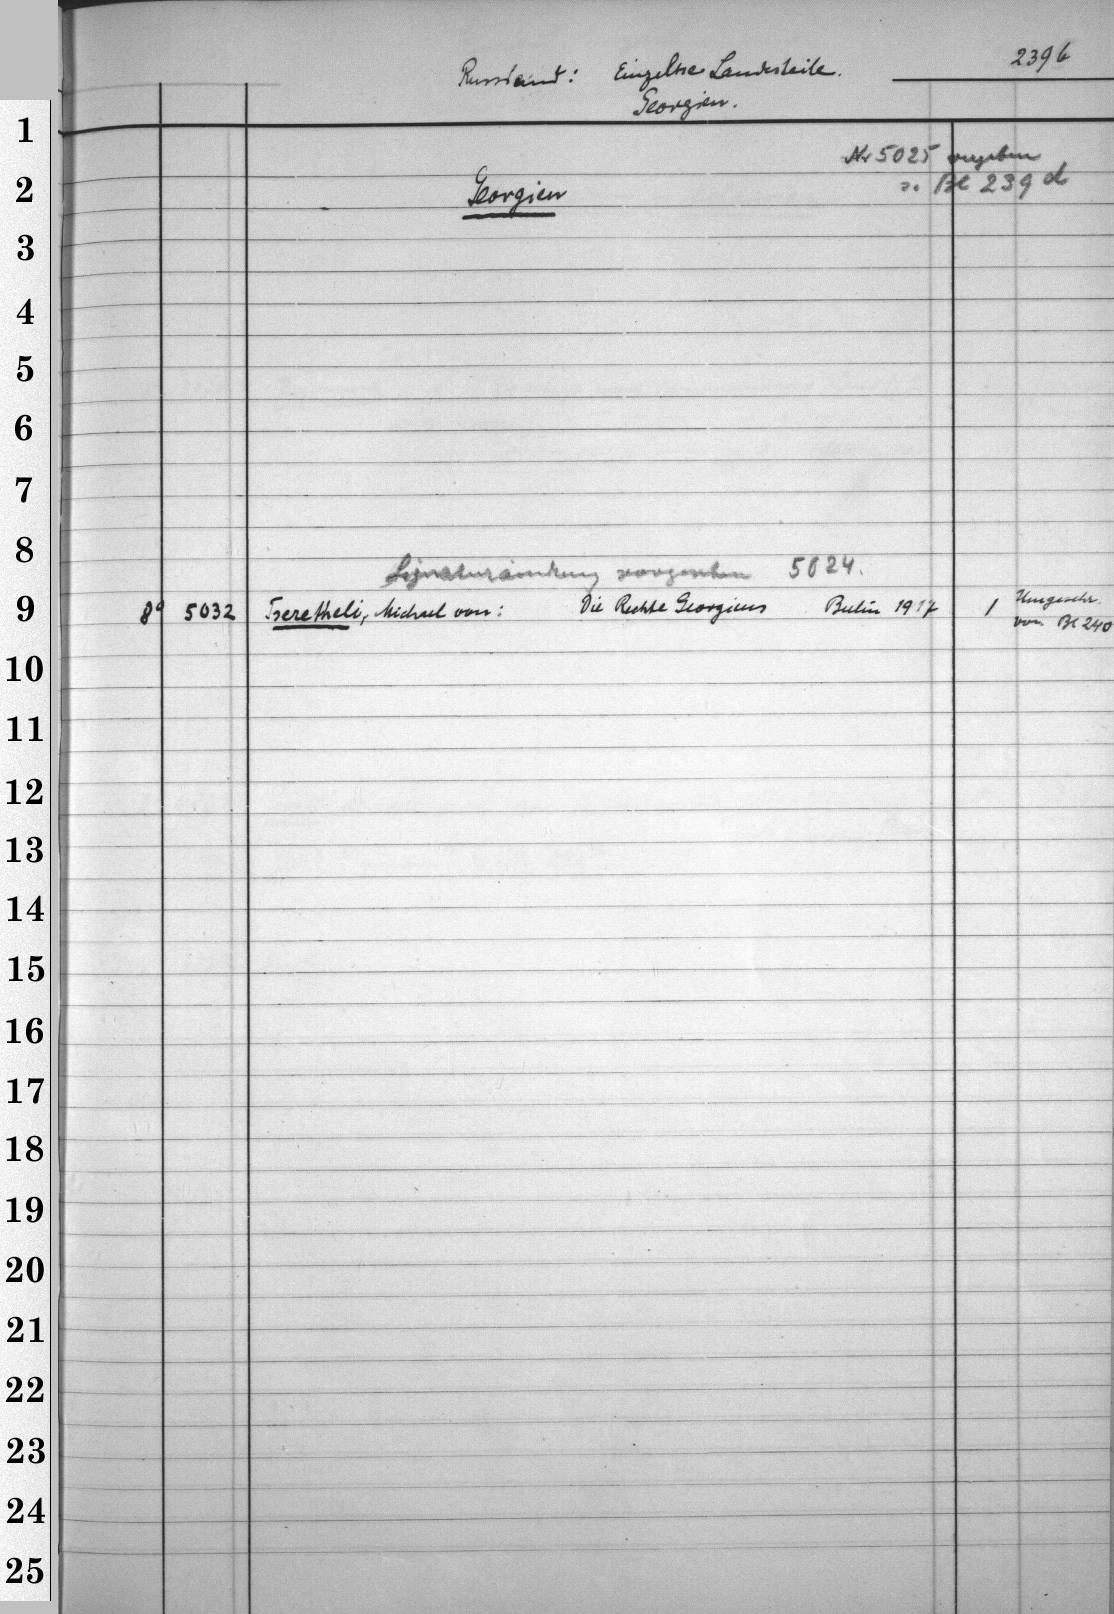 239b
Russland: Einzelne Landesteile.
Georgien.
1
Nr 5025 vergeben
2 Georgien s. Bl 239 d
3
4
5
6
7
8
Signaturänderung vorgesehen 5024.
9 8° 5032 Tseretheli, Michael von: Die Rechte Georgiens Berlin 1917 1 Umgeschr.
von Bl 240
10
11
12
13
14
15
16
17
18
19
20
21
22
23
24
25